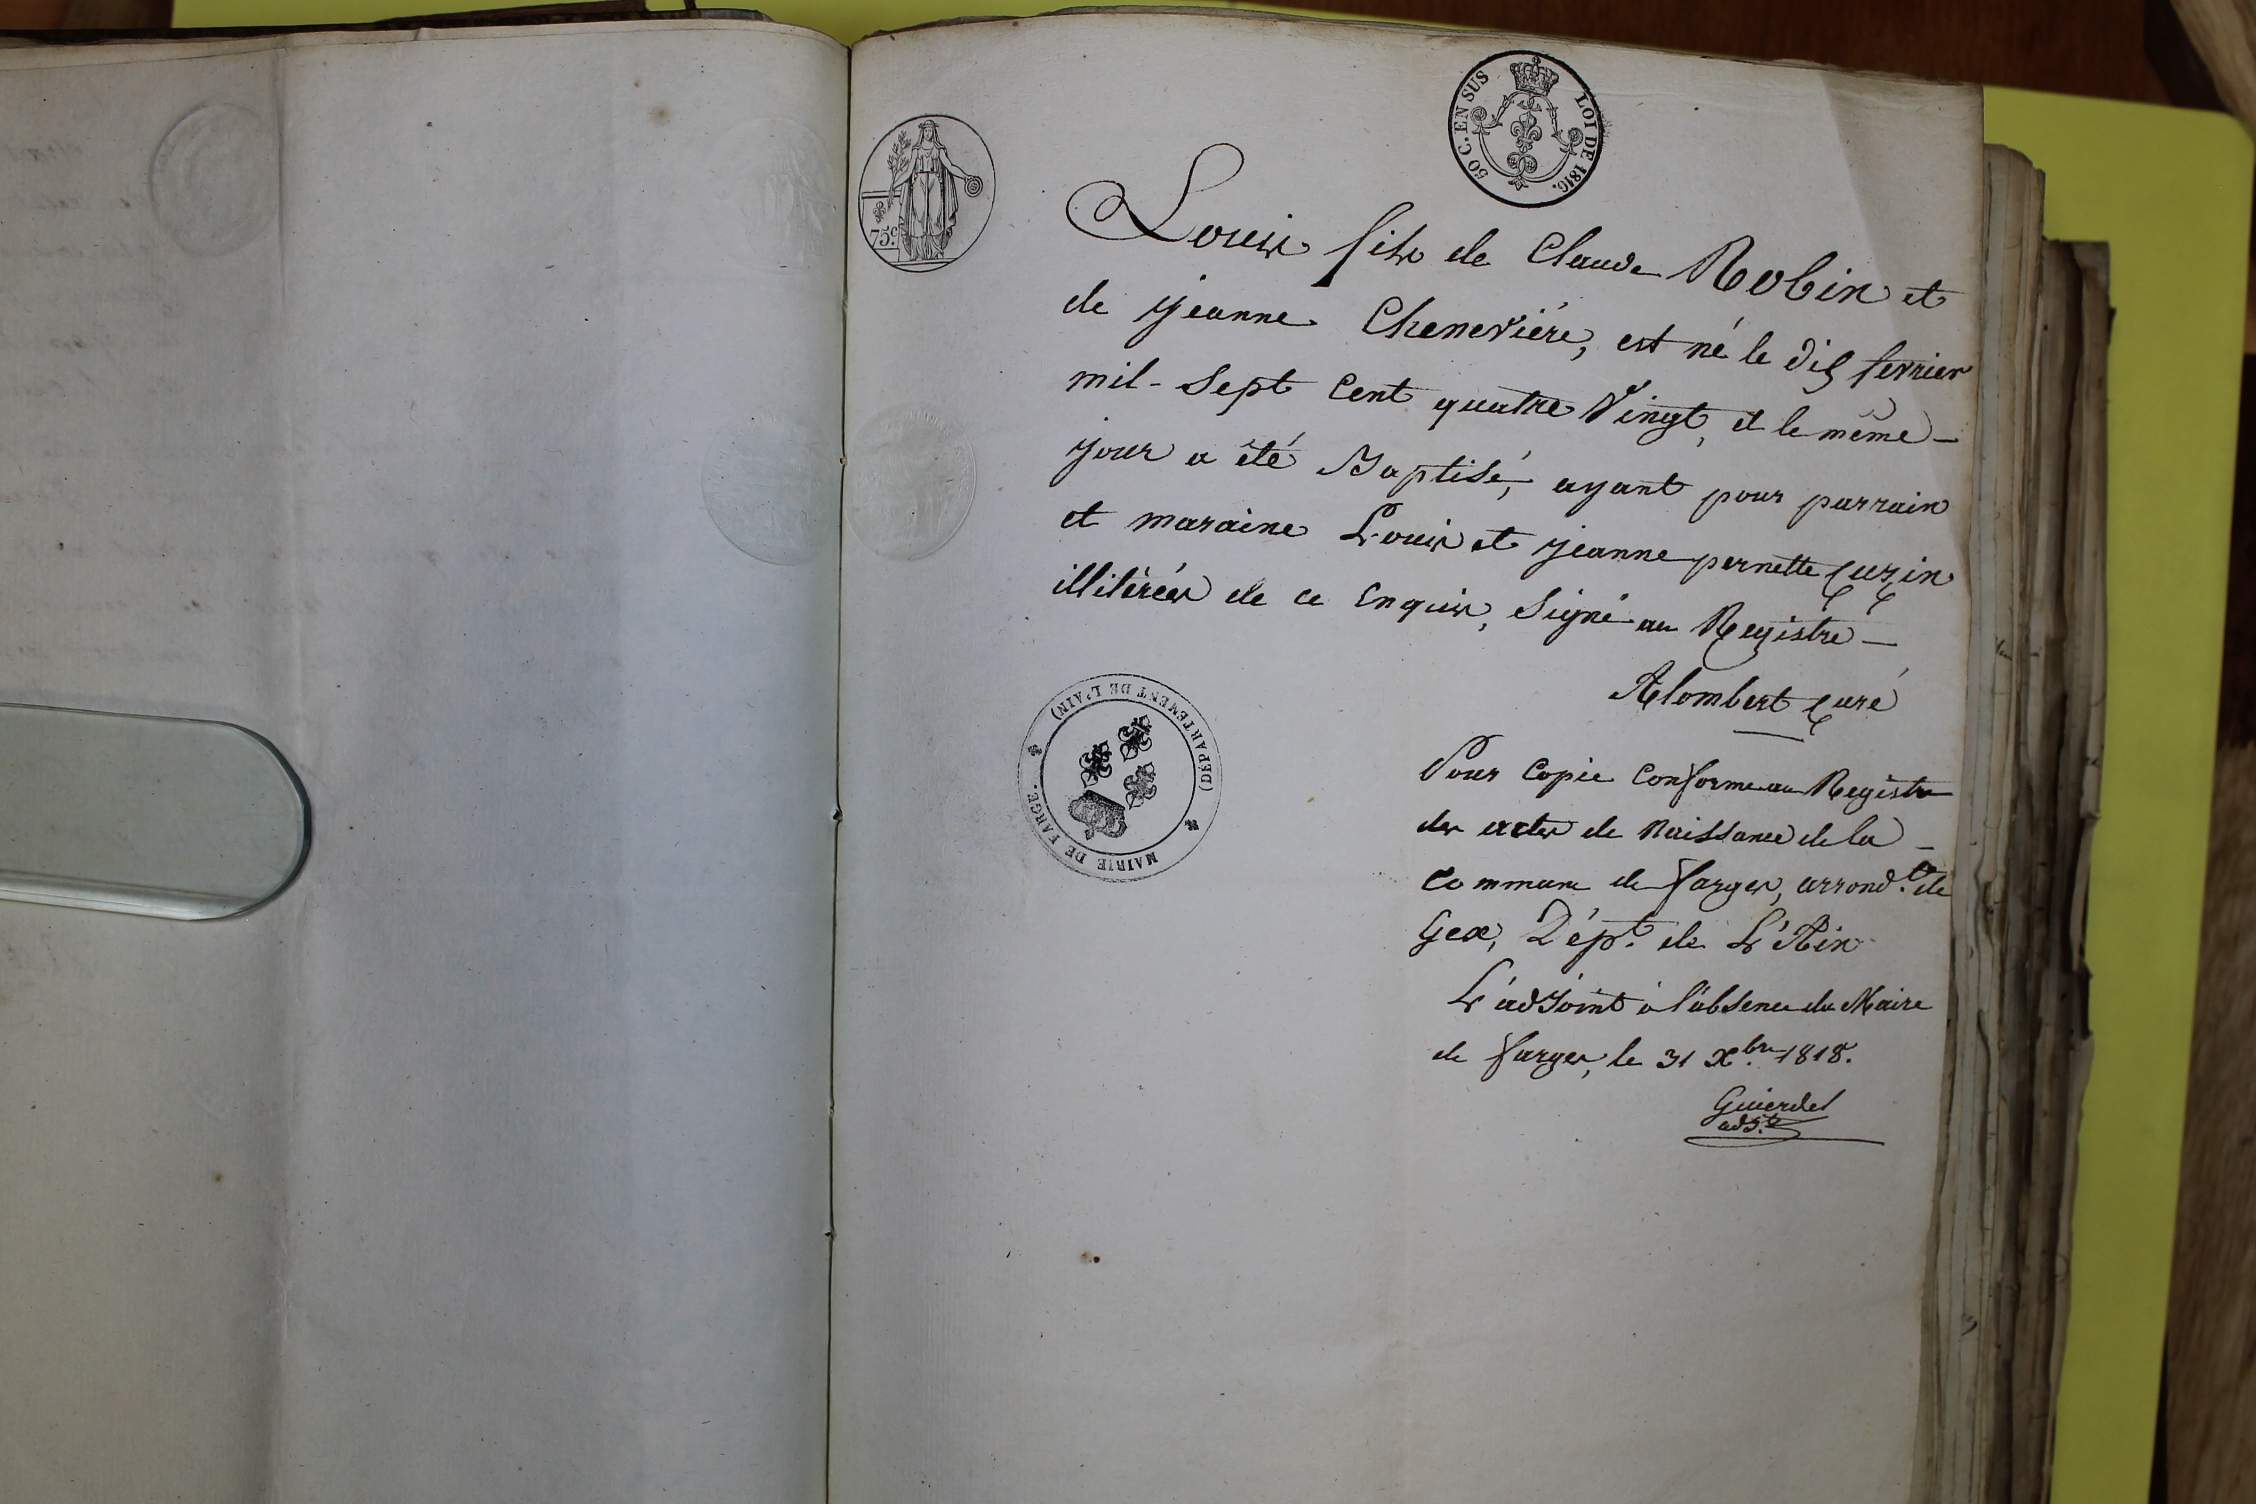 50 C. EN SUS LOI DE 1816.
75 c.
Louis fils de Claude Robin et
de jeanne Chenevière, est né le dix fevrier
mil-sept cent quatre vingt, et le même
jour a été Baptisé, ayant pour parrain
et maraine Louis et jeanne pernette Curzin
illitérés de ce Enquis, Signé au Registre
Alombert Curé
MAIRIE DE FARGE. (DÉPARTEMENT DE L'AIN)
Pour Copie Conforme au Registre
des actes de Naissance de la
Commune de farges, arrond.t de
Gex, Dép.t de L'Ain
L'adjoint à l'absence du Maire
de farges, le 31 Xbre 1818.
Guierdel
adj.t